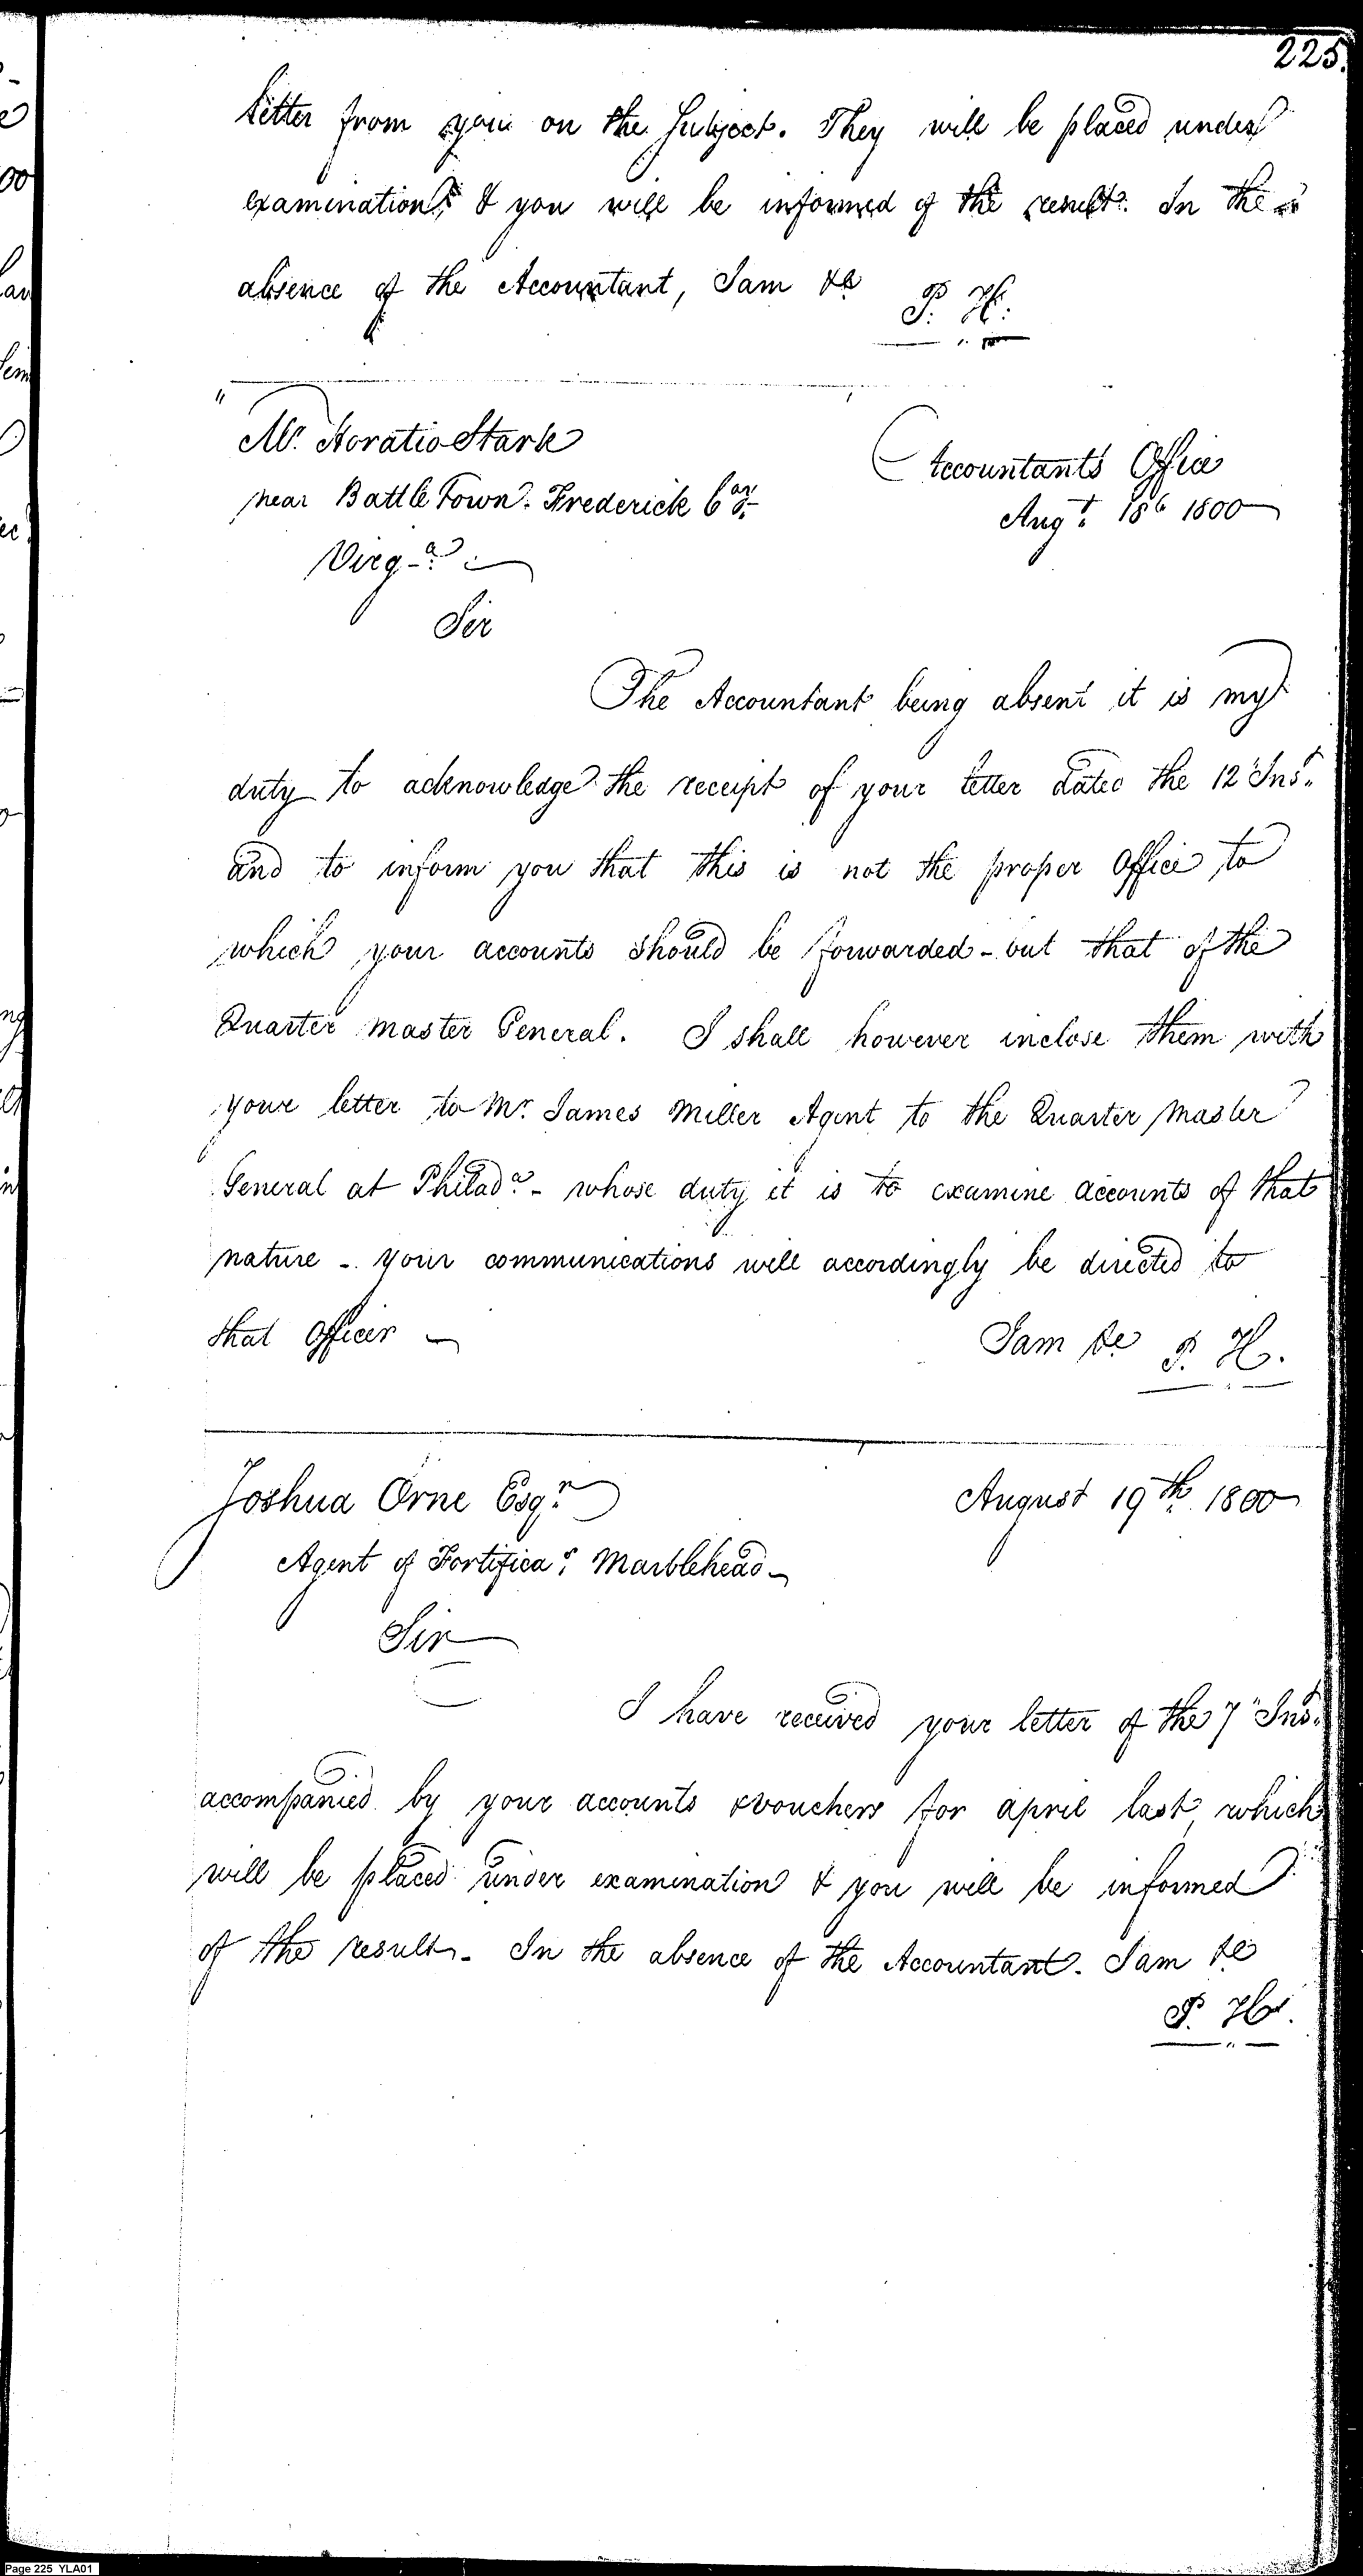 225.
letter from you on the Subject. They will be placed under
examination, & you will be informed of the result. In the
absence of the Accountant, I am &c
P. H.
Mr. Horatio Stark
near Battle Town. Frederick Coy.
Virga.
Accountants Office
Augt. 18th 1800
Sir
The Accountant being absent it is my
duty to acknowledge the receipt of your letter dated the 12" Inst.
and to inform you that this is not the proper Office to
which your accounts should be forwarded - but that of the
Quarter master General. I shall however inclose them with
your letter to Mr. James Miller Agent to the Quarter Master
General at Philada. - whose duty it is to examine accounts of that
nature - your communications will accordingly be directed to
that Officer -
I am &c P. H.
Joshua Orne Esqr.
August 19th. 1800
Agent of Fortificas. Marblehead -
Sir
I have received your letter of the 7" Inst.
accompanied by your accounts & vouchers for april last, which
will be placed under examination & you will be informed
of the result. In the absence of the Accountant. I am &c
P. H.
Page 225 YLA01